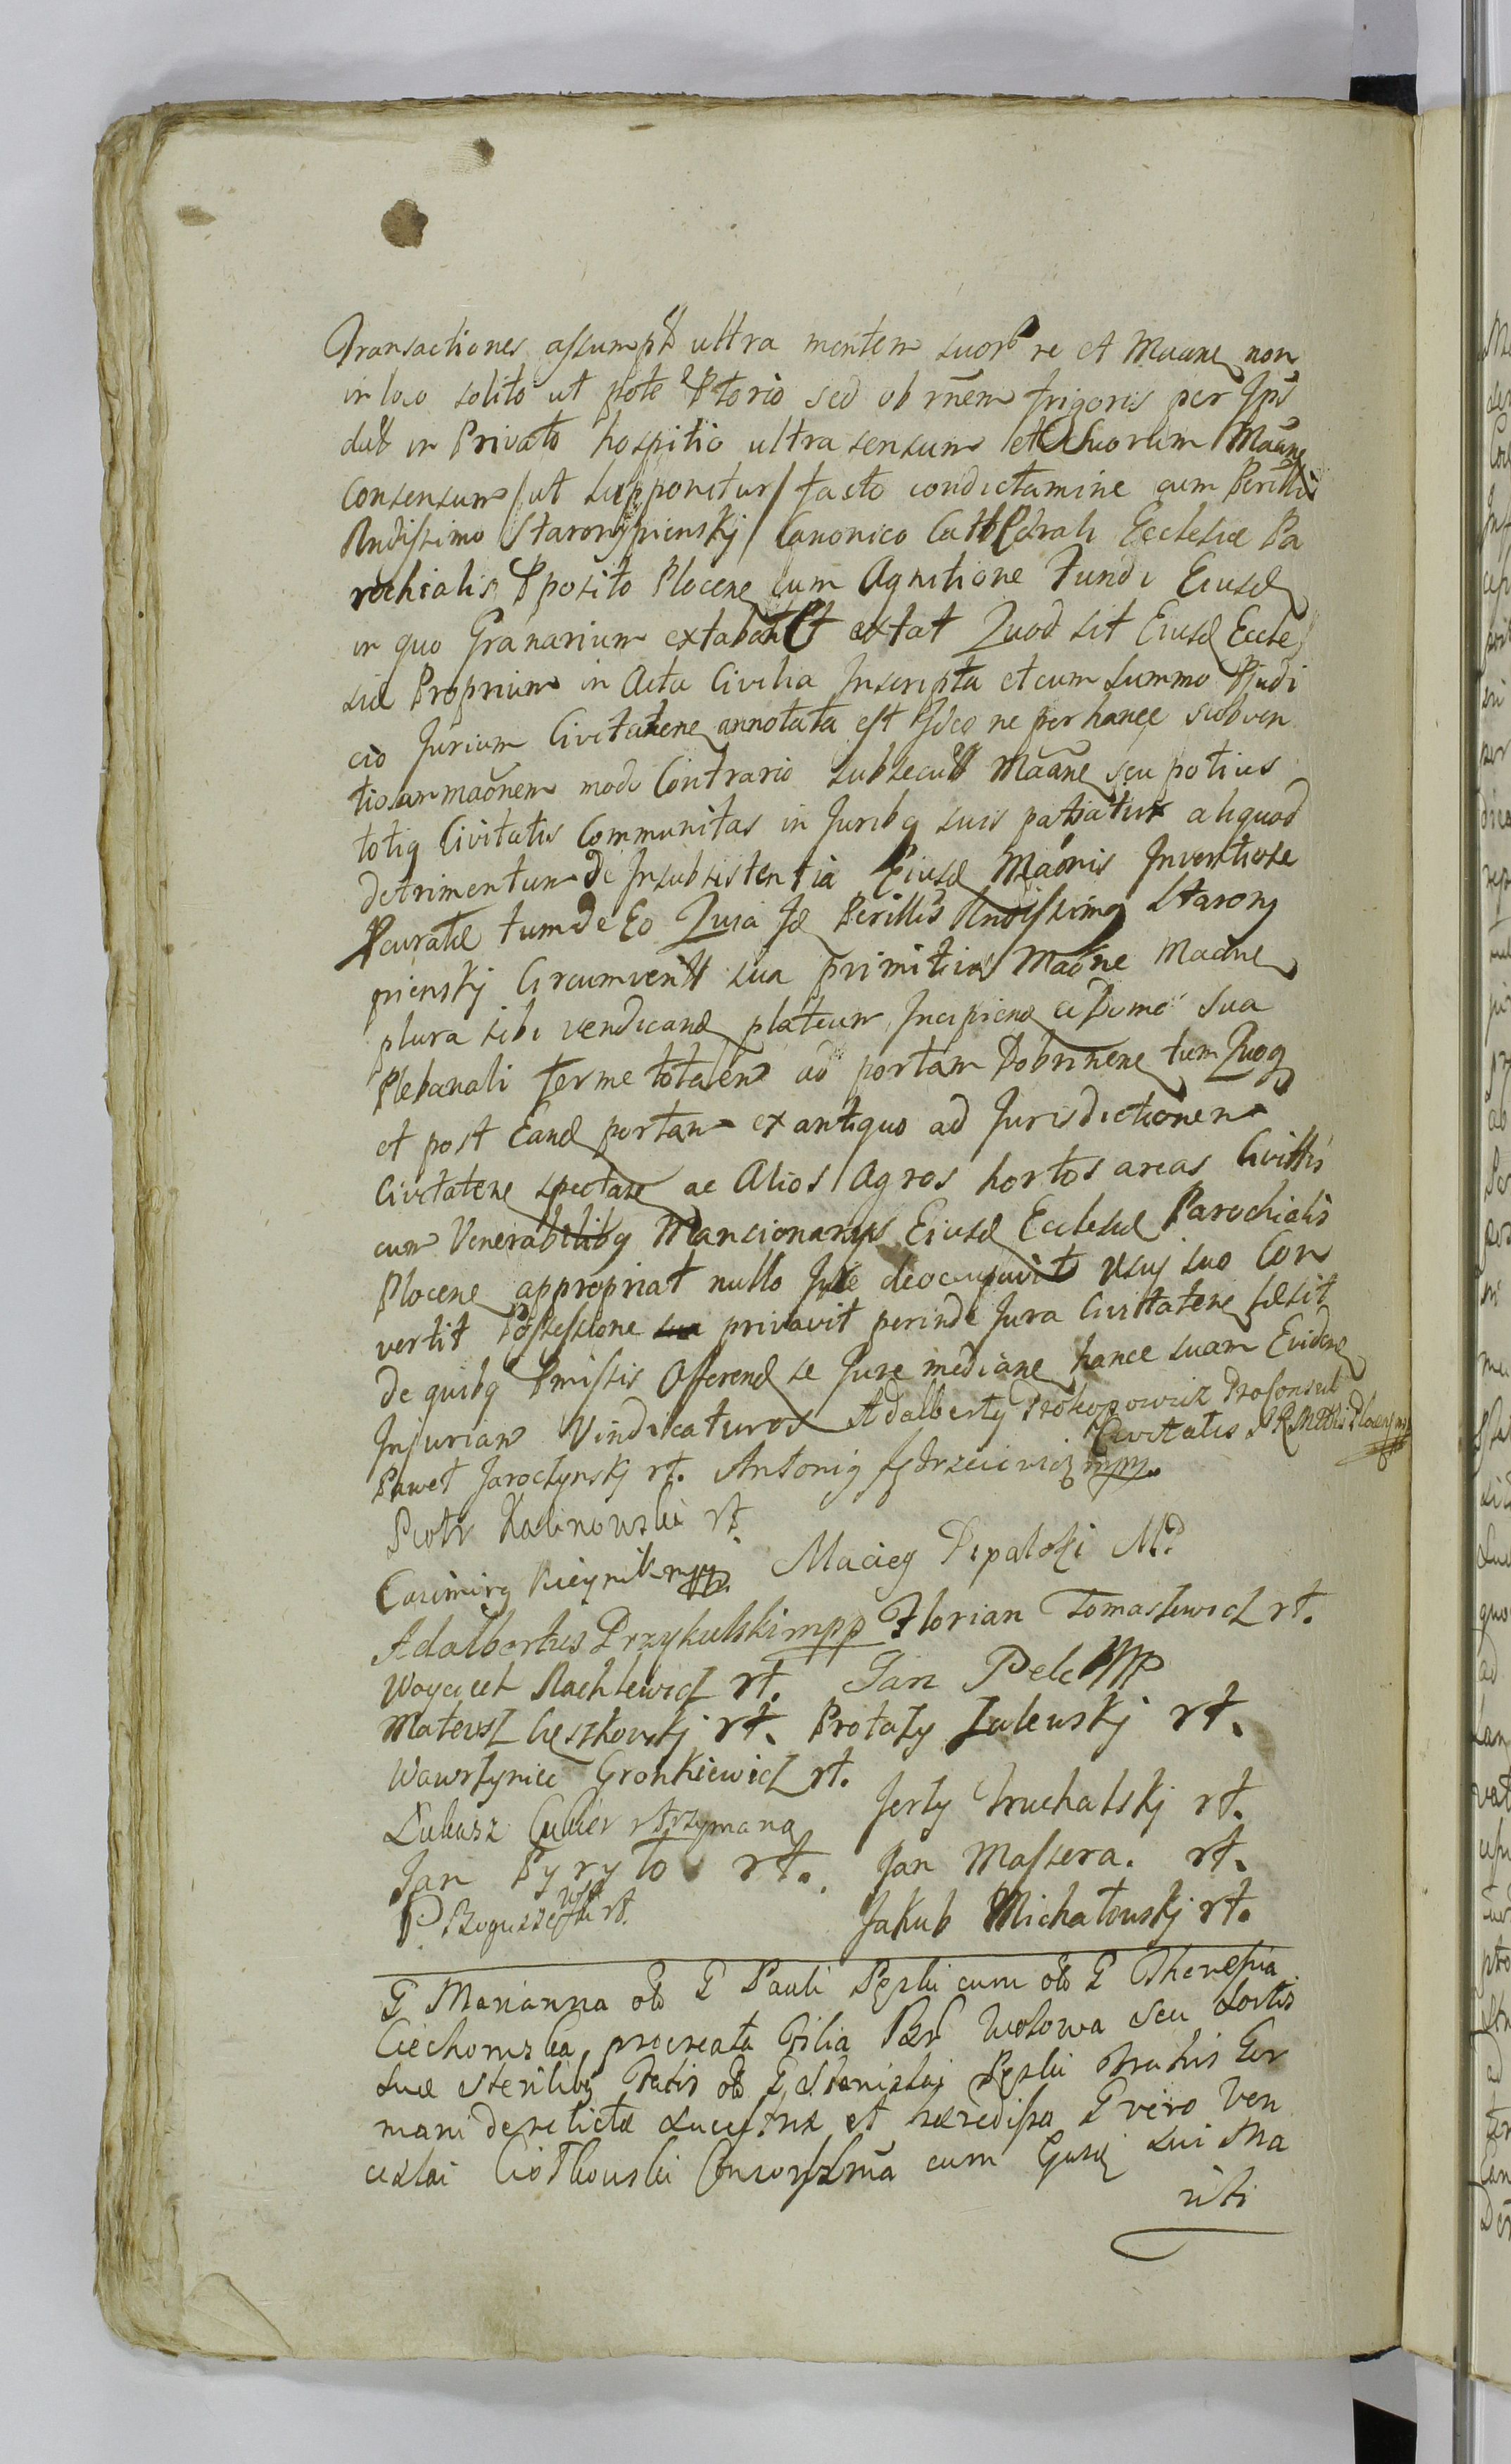 Transactiones assumpt ultra mentem suor re et Maane non
in loco solito ut pote Ptorio sed ob rnem frigoris per Jps
dat in Privato hospitio ultra sensum et Suorum Maane
Consensum /ut supponetur/ facto condictamine cum Perilli
Rndissimo Starorypienskj Canonico Cathedrali Ecclesiæ Pa
rochialis Pposito Plocene cum Agnitione Fundi Eiusd
in quo Granarium extabat Et extat Quod sit Eiusd Eccle
siæ Proprium in Acta Civilia Inscripta et cum summo Pjudi
cio Jurium Civitatene annotata est Ideo ne per hance subven
maonem modo Contrario subsecutt Maane seu potius
totiq Civitatis Communitas in Juribq suis patiatur aliquod
detrimentum de Insubsistentia Eiusd Maonis Inventiose
Pcuratæ tum de Eo Quia Jd Perillis Rndissimq Starory
pienskj Circumventt sua primitiva Maone Maane
plura sibi vendicand plateam Incipiend a Domo sua
Plebanali ferme totalem ad portam Dobrinene tum Quoq
et post Eand portam ex antiquo ad Jurisdictionem
Civitatene spectare ac Alios Agros hortos areas Civittis
cum Venerabilibq Mansionarys Eiusd Ecclesiæ Parochialis
Plocene appropriat nullo Jure deoccupavit usuj suo Con
vertit Possessione privavit perinde Jura Civitatene læsit
de quibq Pmissis Offerend se Jure mediane hance suam Evidene
Injuriam Vindicaturos Adalbertq Prokopowicz Proconsul
Civitatis S R M Plocens mp
Paweł Jaroczynskj rt. Antoniq Jędrzeiewicz mpp.
Piotr Kalinowski rt
Casimirq Kieynik mpp. Macieg Pepalski M.P
Adalbertus Przykulski mpp Florian Tomaszewicz rt.
Woyciech Rachlewicz rt. Jan Pelc MP
Mateusz Cieszkowskj rt. Protazy Zalewskj rt.
Wawrzyniec Gronkiewicz rt.
Jerzy Truchalskj rt.
Łukasz Cukier rt rzymana
Jan Pyryto rt. Jan Massera. rt.
P. Boguszewski rt.
Jakub Michałowskj rt.
G Marianna olo G Pauli Pęski cum olo G Theresia
Ciechomska procreata Filia Bo Wołowa seu Sortis
suæ sterilibq Fatis olo G Stanislai Pęski Fratris Ger
mani derelictæ Succestrix et hæredissa G vero Ven
ceslai Ciołkowski Consors Lma cum Gusd sui Ma
riti